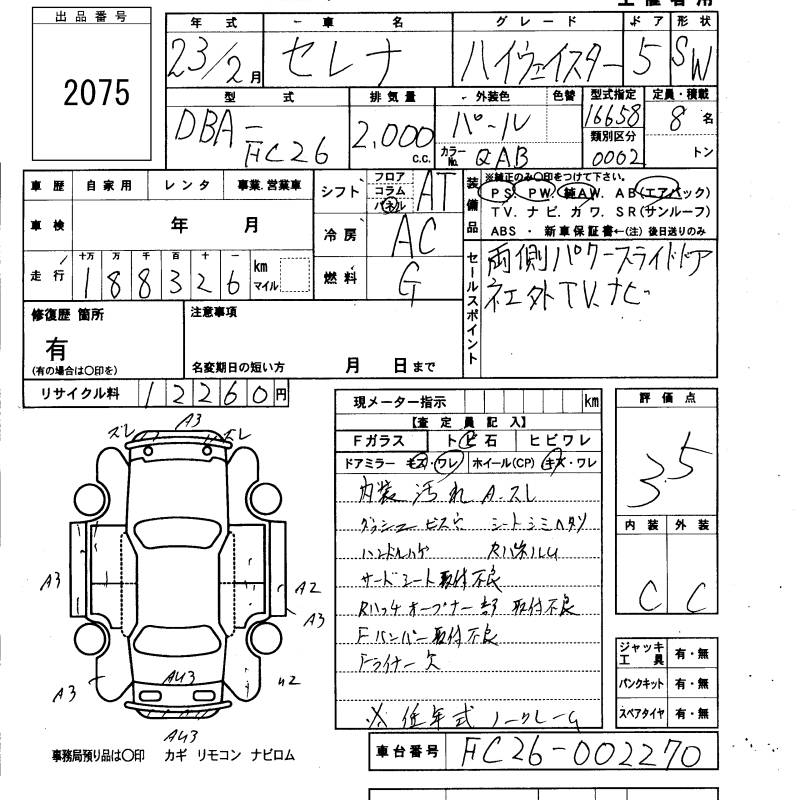 出品番号
2075
年式 車名 グレード ドア 形状
23/2月 セレナ ハイウェイスター 5 SW
型式 排気量 外装色 色替 型式指定 定員・積載
DBA-FC26 2,000c.c. パール 16658 8名
カラーNo. QAB 類別区分 0002 トン
車歴 自家用 レンタ 事業.営業車
シフト フロア コラム パネル AT
装備品 ※純正のみ○印をつけて下さい。
PS. PW. 純AW. AB(エアバック)
TV. ナビ. カワ. SR(サンルーフ)
ABS ・ 新車保証書←(注) 後日送りのみ
車検 年 月
冷房 AC
走行 十万 万 千 百 十 一
188326 km マイル
燃料 G
セールスポイント
両側パワースライドドア
社外TV.ナビ
修復歴 箇所
有
(有の場合は○印を)
注意事項
名変期日の短い方 月 日まで
リサイクル料 12260円
現メーター指示 km
【査定員記入】
Fガラス トビ石 ヒビワレ
ドアミラー キズ・ワレ ホイール(CP) キズ・ワレ
内装汚れ A.スレ
ダッシュビス穴 シートシミヘタリ
ハンドルハゲ RパネルU
サードシート取付不良
Rハッチオープナー部取付不良
Fバンパー取付不良
Fライナー欠
※低年式ノークレーム
評価点
3.5
内装 外装
C C
ジャッキ工具 有・無
パンクキット 有・無
スペアタイヤ 有・無
ズレ A3 ズレ
A3 A2
A3
A3 AU3 U2
AU3
事務局預り品は○印 カギ リモコン ナビロム
車台番号 FC26-002270